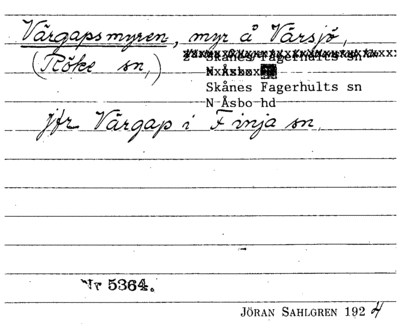 Vårgapsmyren, myr å Vårsjö,
(Röke sn,)
Skånes Fagerhults sn
N Åsbo
Skånes Fagerhults sn
N Åsbo hd
jfr Vårgap i Finja sn,
Nr 5364.
JÖRAN SAHLGREN 1924